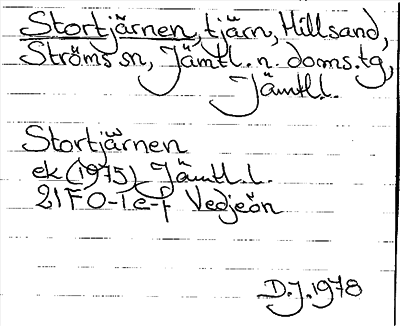 Stortjärnen, tjärn, Hillsand,
Ströms sn, Jämtl. n. doms.tg,
Jämtl.l.
Stortjärnen
ek (1975) Jämtl.l.
21F0-1e-f Vedjeön
D.J. 1978